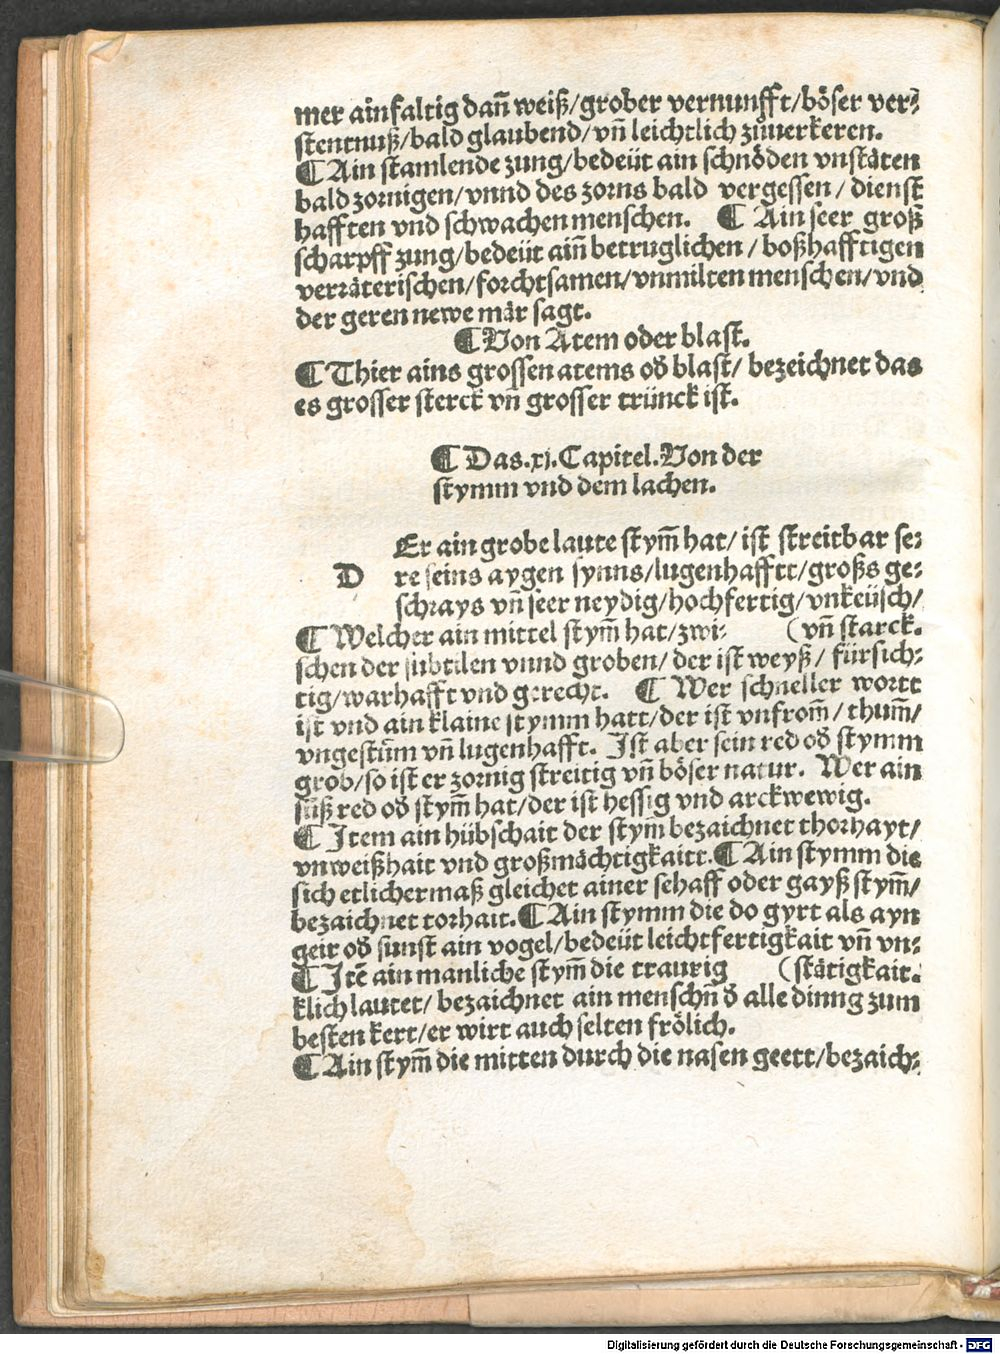 mer ainfaltig dañ weiß/grober vernunfft/böser ver⸗
stentnuß/bald glaubend/vñ leichtlich zůuerkeren.
¶ Ain stamlende zung/bedeüt ain schnöden vnstäten
bald zornigen/vnnd des zorns bald vergessen/dienst
hafften vnd schwachen menschen. ¶ Ain seer groß
scharpff zung/bedeüt aiñ betruglichen/boßhafftigen
verräterischen/forchtsamen/vnmilten menschen/vnd
der geren newe mär sagt.
¶ Von Atem oder blast.
¶ Thier ains grossen atems od̕ blast/bezeichnet das
es grosser sterck vñ grosser trünck ist.
¶ Das .xj. Capitel. Von der
stymm vnd dem lachen.
Er ain grobe laute stym̃ hat/ist streitbar se⸗
D re seins aygen synns/lugenhafftt/großs ge⸗
schrays vñ seer neydig/hochfertig/vnkeüsch/
¶ Welcher ain mittel stym̃ hat/zwi⸗ (vñ starck.
schen der subtilen vnnd groben/der ist weyß/fürsich⸗
tig/warhafft vnd gerecht. ¶ Wer schneller wortt
ist vnd ain klaine stymm hatt/der ist vnfrom̃/thum̃/
vngestům vñ lugenhafft. Ist aber sein red od̕ stymm
grob/so ist er zornig streitig vñ böser natur. Wer ain
süß red od̕ stym̃ hat/der ist hessig vnd arckwewig.
¶ Item ain hübschait der stym̃ bezaichnet thorhayt/
vnweißhait vnd großmächtigkaitt. ¶ Ain stymm die
sich etlichermaß gleichet ainer schaff oder gayß stym̃/
bezaichnet torhait. ¶ Ain stymm die do gyrt als ayn
geir od̕ sunst ain vogel/bedeüt leichtfertigkait vñ vn⸗
¶ Itẽ ain manliche stym̃ die traurig (stätigkait.
klich lautet/bezaichnet ain menschñ d̕ alle dinng zum
besten kert/er wirt auch selten frölich.
¶ Ain stym̃ die mitten durch die nasen geett/bezaich⸗
Digitalisierung gefördert durch die Deutsche Forschungsgemeinschaft - DFG